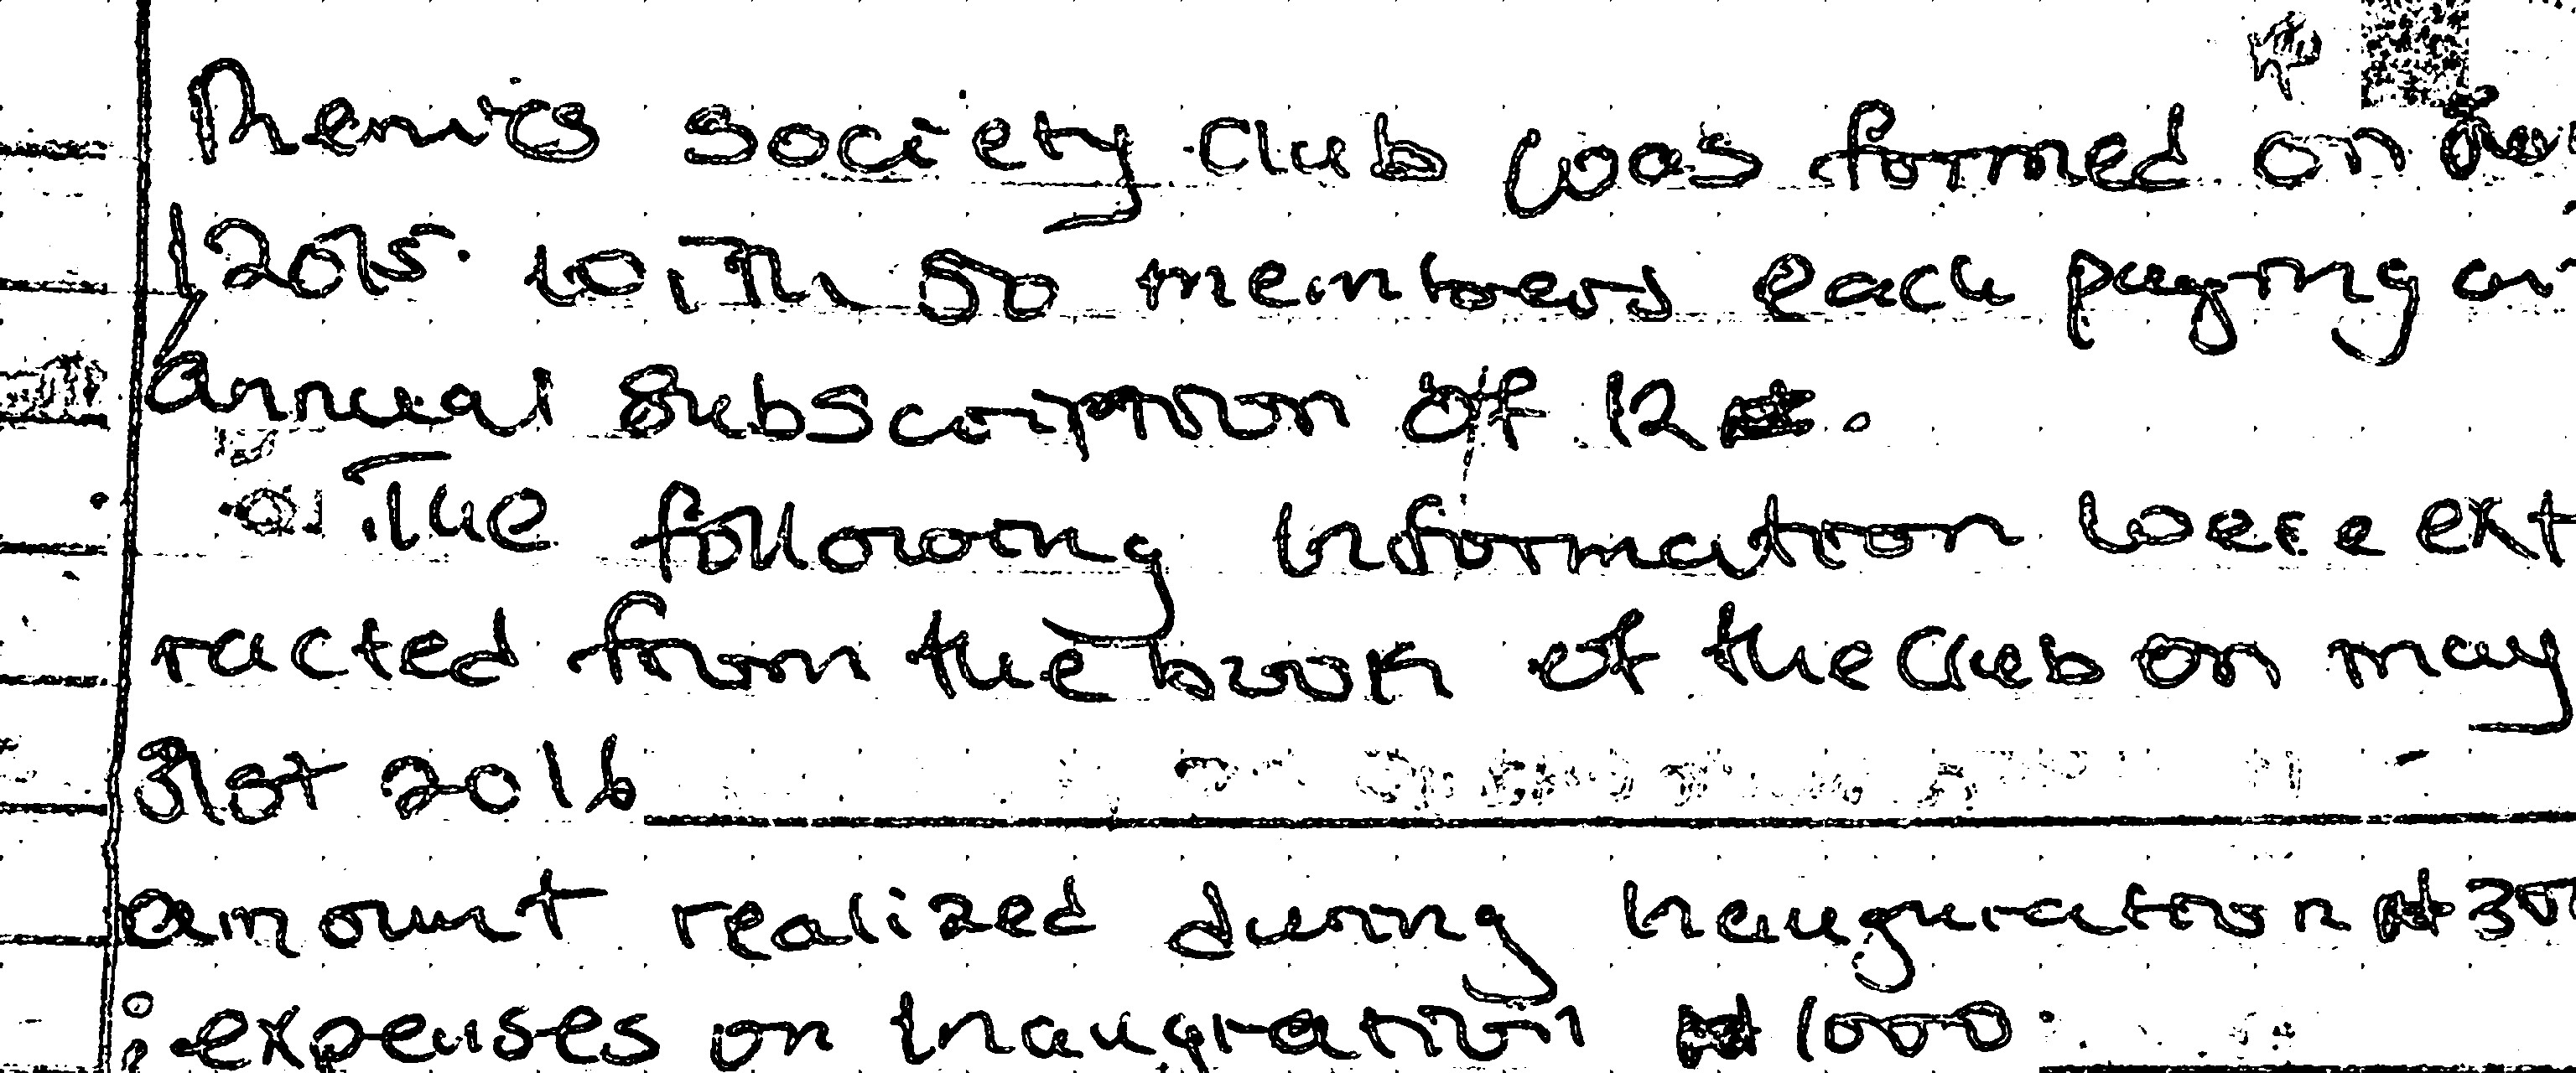 Phenics society club was formed on
1 2015. with 50 members each paying an
annual subscription of 12
The following information were ext
racted from the book of the club on may
31st 2016
amount realized during inauguration ₦ 300
expenses on inaugration ₦ 1000